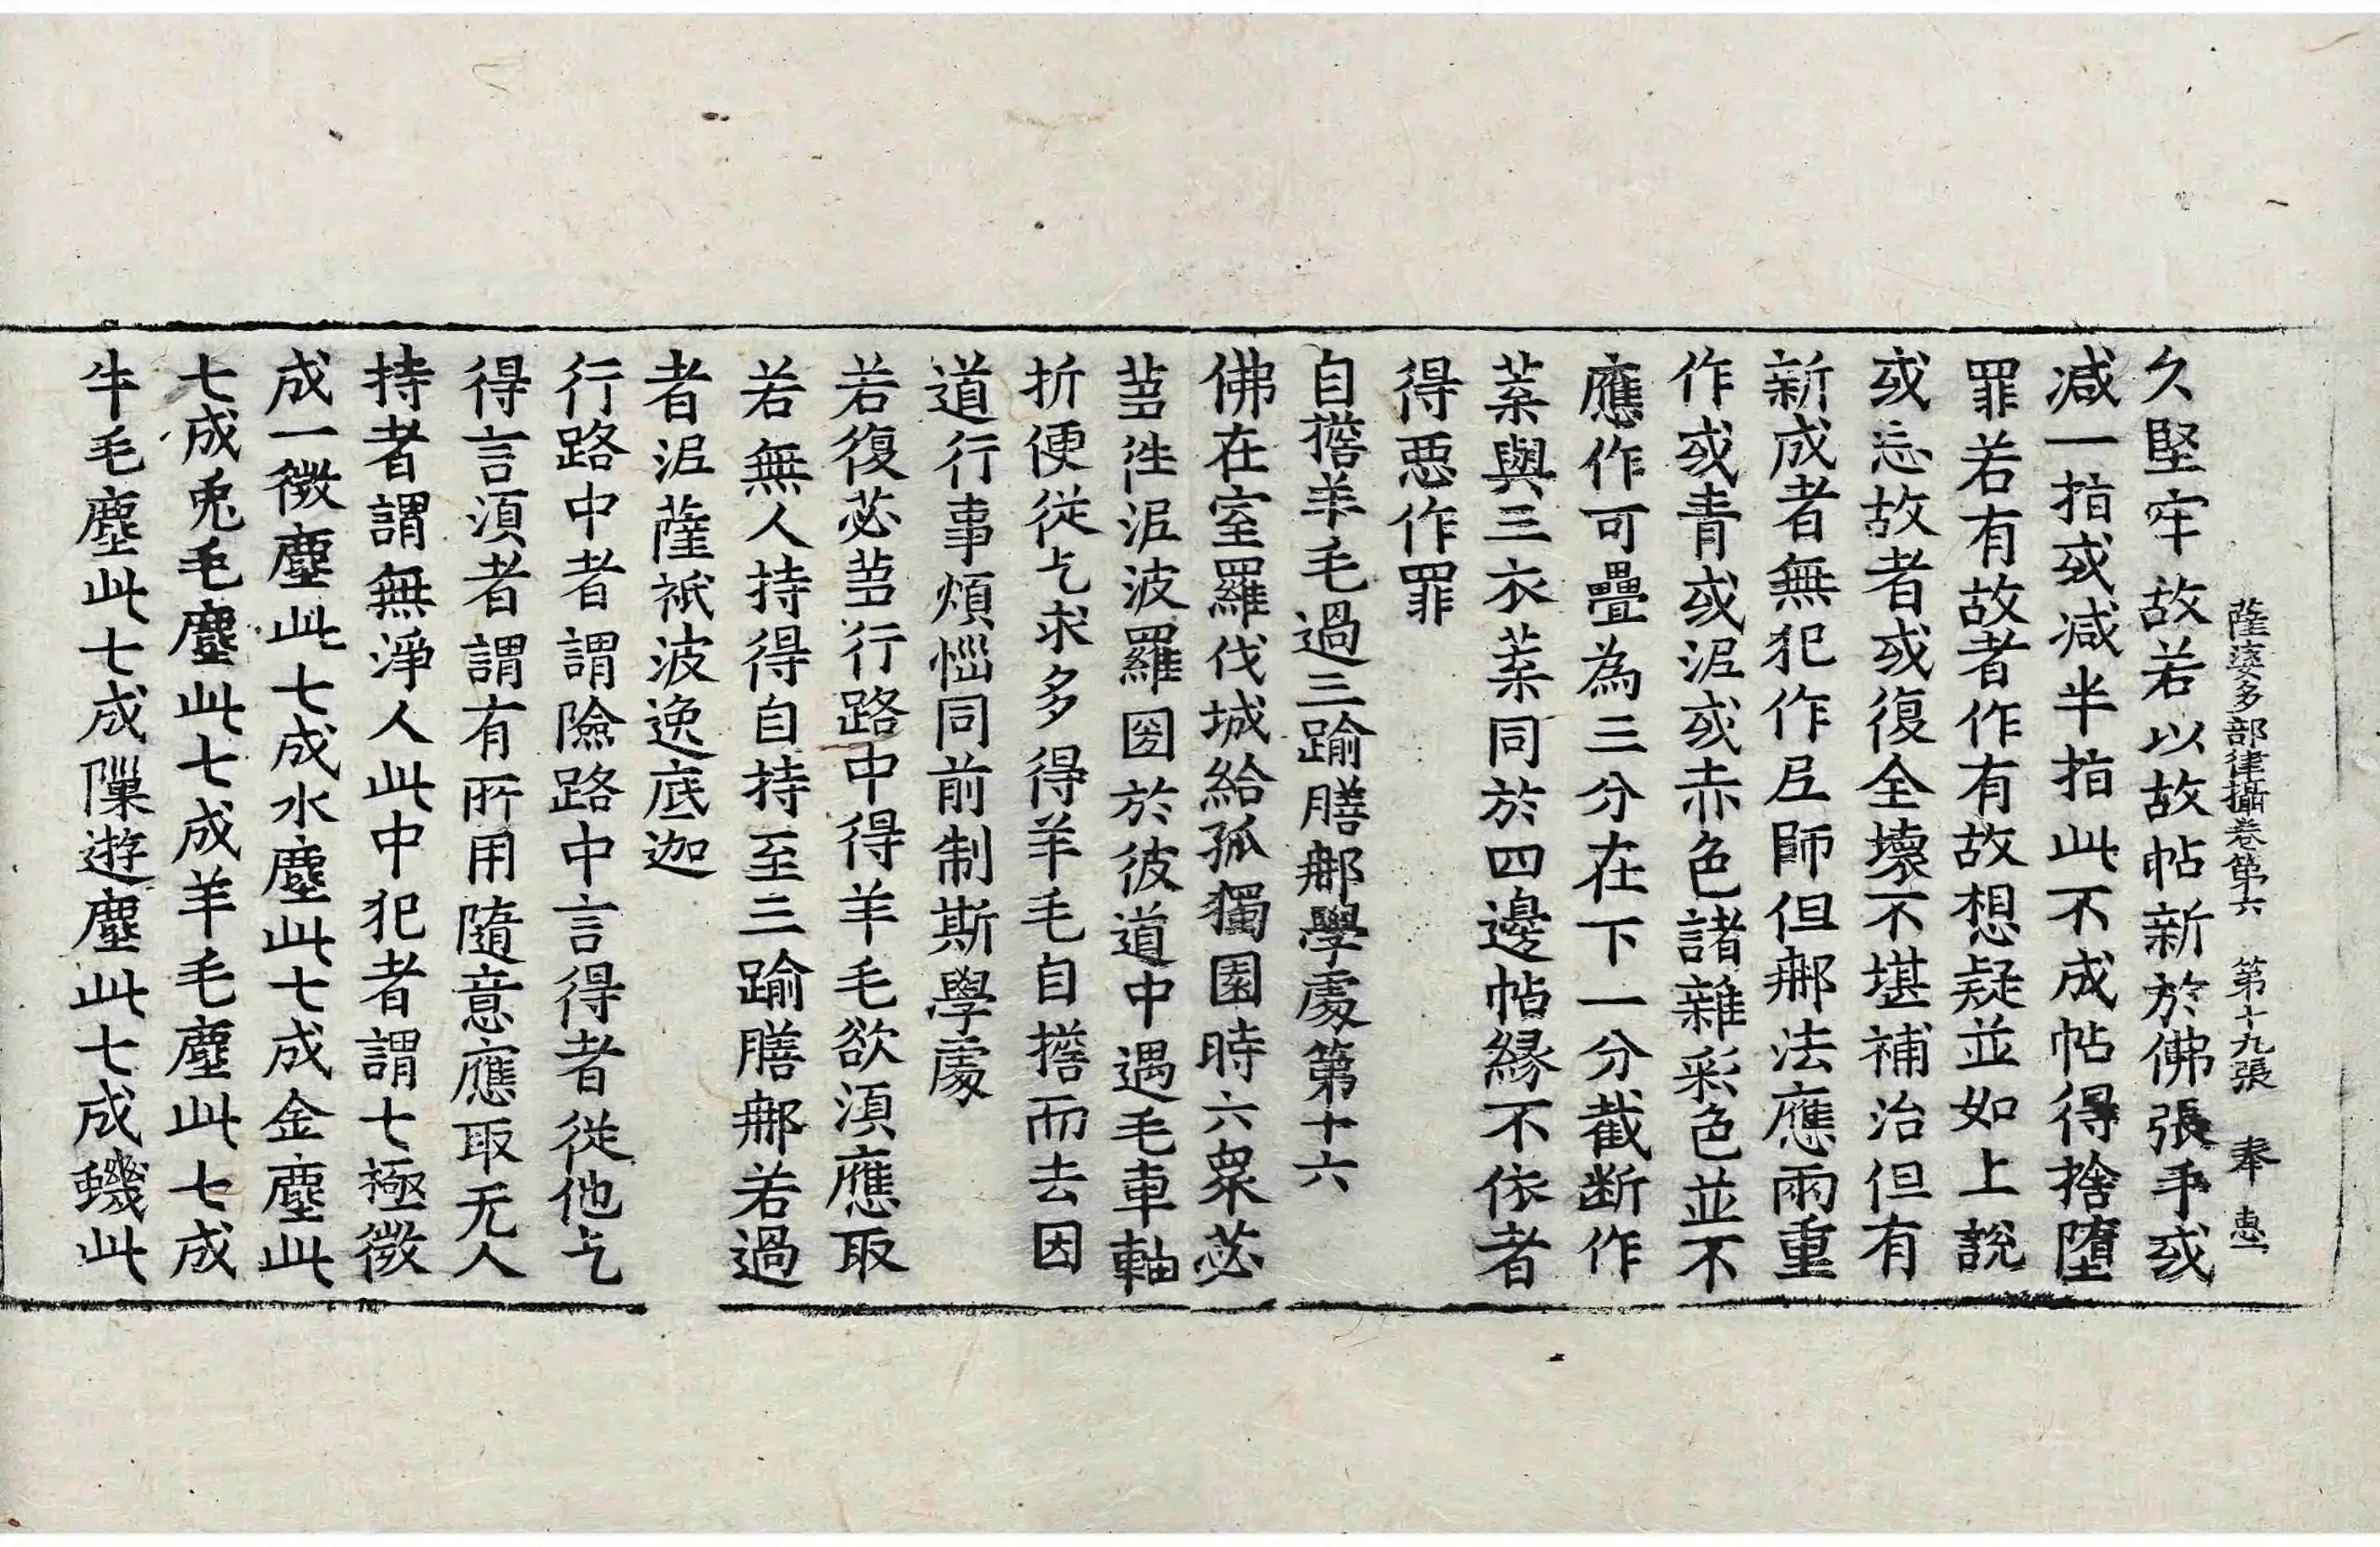 薩婆多部律攝卷第六 第十九張 奉 惠
久堅牢故若以故帖新於佛張手或
減一指或減半指此不成帖得捨墮
罪若有故者作有故想疑並如上說
或忘故者或復全壞不堪補治但有
新成者無犯作尼師但那法應兩重
作或青或泥或赤色諸雜彩色並不
應作可疊為三分在下一分截断作
葉與三衣葉同於四邊帖緣不依者
得惡作罪
自擔羊毛過三踰膳那學處第十六
佛在室羅伐城給孤獨園時六衆苾
芻往泥波羅國於彼道中遇毛車軸
折便從乞求多得羊毛自擔而去因
道行事煩惱同前制斯學處
若復苾芻行路中得羊毛欲湏應取
若無人持得自持至三踰膳那若過
者泥薩祇波逸底迦
行路中者謂險路中言得者從他乞
得言湏者謂有所用隨意應取无人
持者謂無淨人此中犯者謂七極微
成一微塵此七成水塵此七成金塵此
七成兎毛塵此七成羊毛塵此七成
牛毛塵此七成隟遊塵此七成蟣此